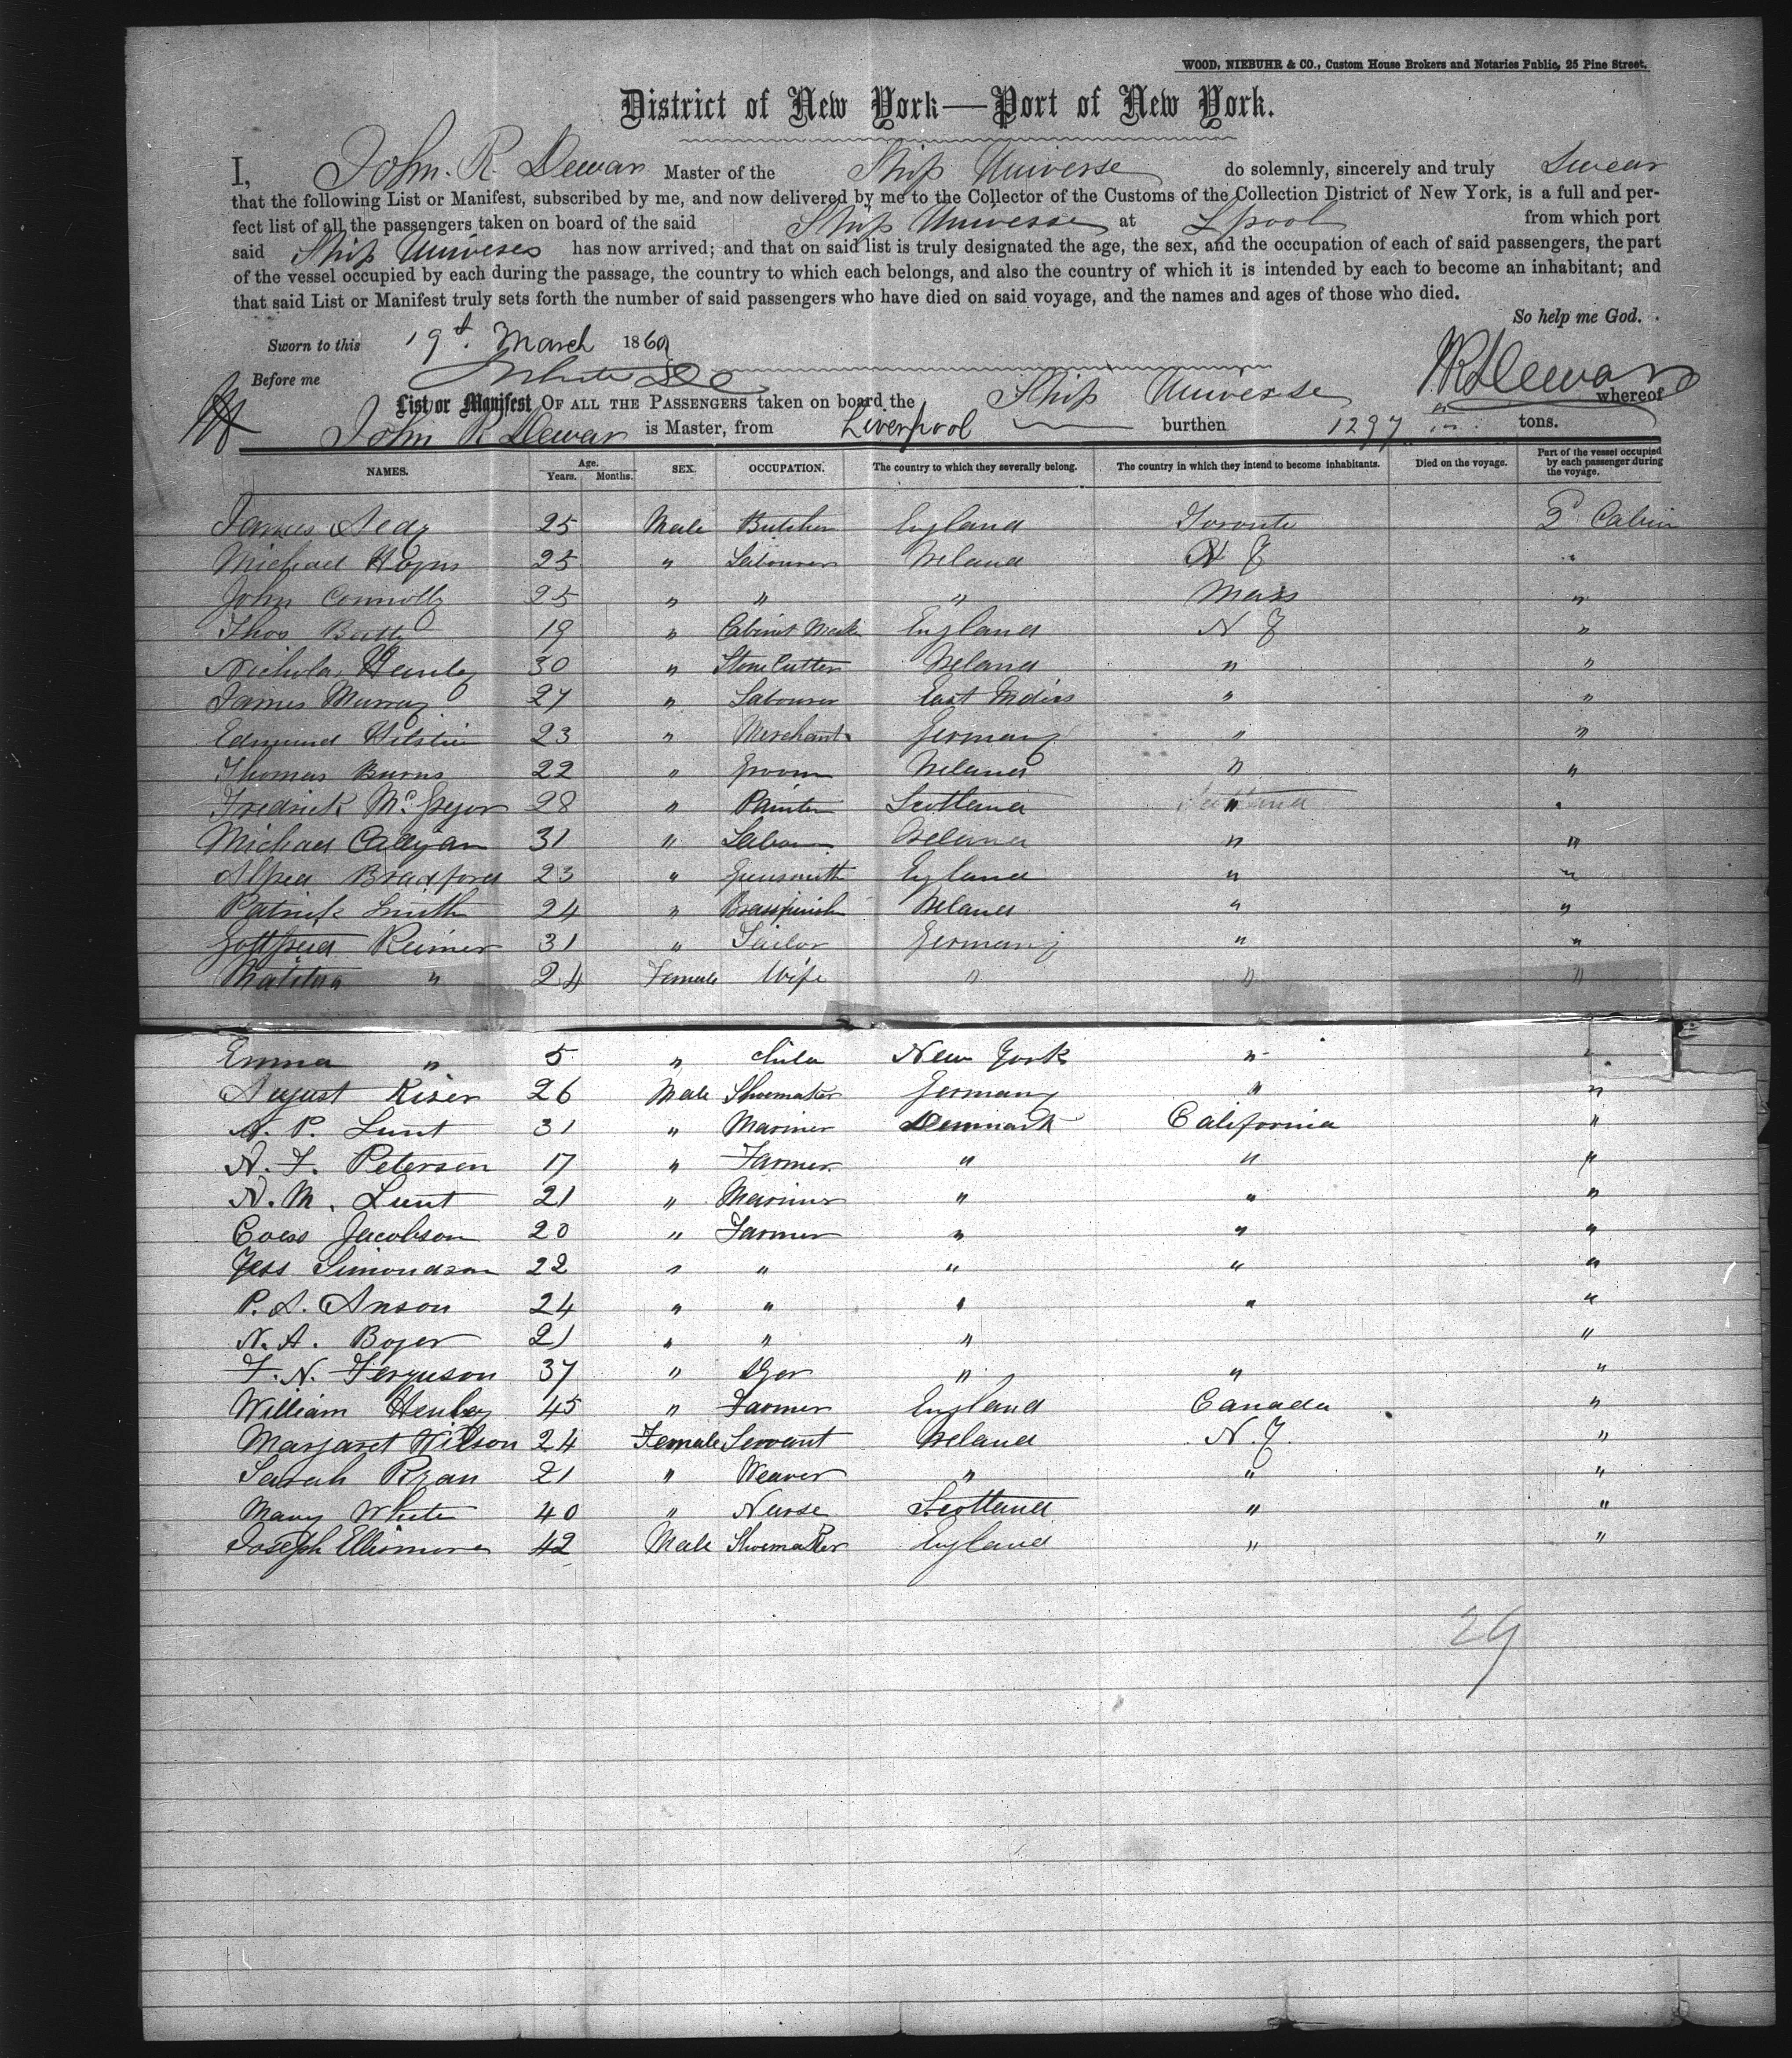 WOOD, NIEBUHR & CO., Custom House Brokers and Notaries Public, 25 Pine Street.
District of New York—Port of New York.
I, John. R. Dewar Master of the Ship Universe do solemnly, sincerely and truly Swear
that the following List or Manifest, subscribed by me, and now delivered by me to the Collector of the Customs of the Collection District of New York, is a full and per-
fect list of all the passengers taken on board of the said Ship Universe at Lpool from which port
said Ship Universe has now arrived; and that on said list is truly designated the age, the sex, and the occupation of each of said passengers, the part
of the vessel occupied by each during the passage, the country to which each belongs, and also the country of which it is intended by each to become an inhabitant; and
that said List or Manifest truly sets forth the number of said passengers who have died on said voyage, and the names and ages of those who died.
So help me God.
Sworn to this 19t. March 186
Before me JRDewar
List or Manifest OF ALL THE PASSENGERS taken on board the Ship Universe whereof
John R Dewar is Master, from Liverpool burthen 1297 tons.
NAMES. Age. Years. Months. SEX. OCCUPATION. The country to which they severally belong. The country in which they intend to become inhabitants. Died on the voyage. Part of the vessel occupied by each passenger during the voyage.
James 25 Male Butcher England Toronto 2 Cabin
Michael 25 " Labourer Ireland N Y "
John Connolly 25 " " " Mass "
Thos 19 " Cabinet Mak England N Y "
Nicholas Henley 30 " Stone Cutter Ireland " "
James Murray 27 " Labourer East Indies " "
Edmund 23 " Merchant Germany " "
Thomas Burns 22 " Groom Ireland " "
Fredrick Mc Gregor 28 " Painter Scotland " "
Michael 31 " Labour Ireland " "
Alfred Bradford 23 " Gunsmith England " "
Patrick Smith 24 " Brassfinish Ireland " "
Gottfried Reimer 31 " Tailor Germany " "
Matilda " 24 Female Wife " " "
Emma " 5 " Child New York " "
August Kiser 26 Male Shoemaker Germany " "
A. P. Lunt 31 " Mariner Denmark California "
A. F. Peterson 17 " Farmer " " "
N. M. Lunt 21 " Mariner " " "
Jacobson 20 " Farmer " " "
Jess Simondson 22 " " " " "
P. A. Anson 24 " " " " "
N. A. Boyer 21 " " " "
F. N. Ferguson 37 " Dyer " " "
William Henley 45 " Farmer England Canada "
Margaret Wilson 24 Female Servant Ireland N. Y. "
Sarah Ryan 21 " Weaver " " "
Mary White 40 " Nurse Scotland " "
Joseph Ellismore 42 Male Shoemaker England " "
29